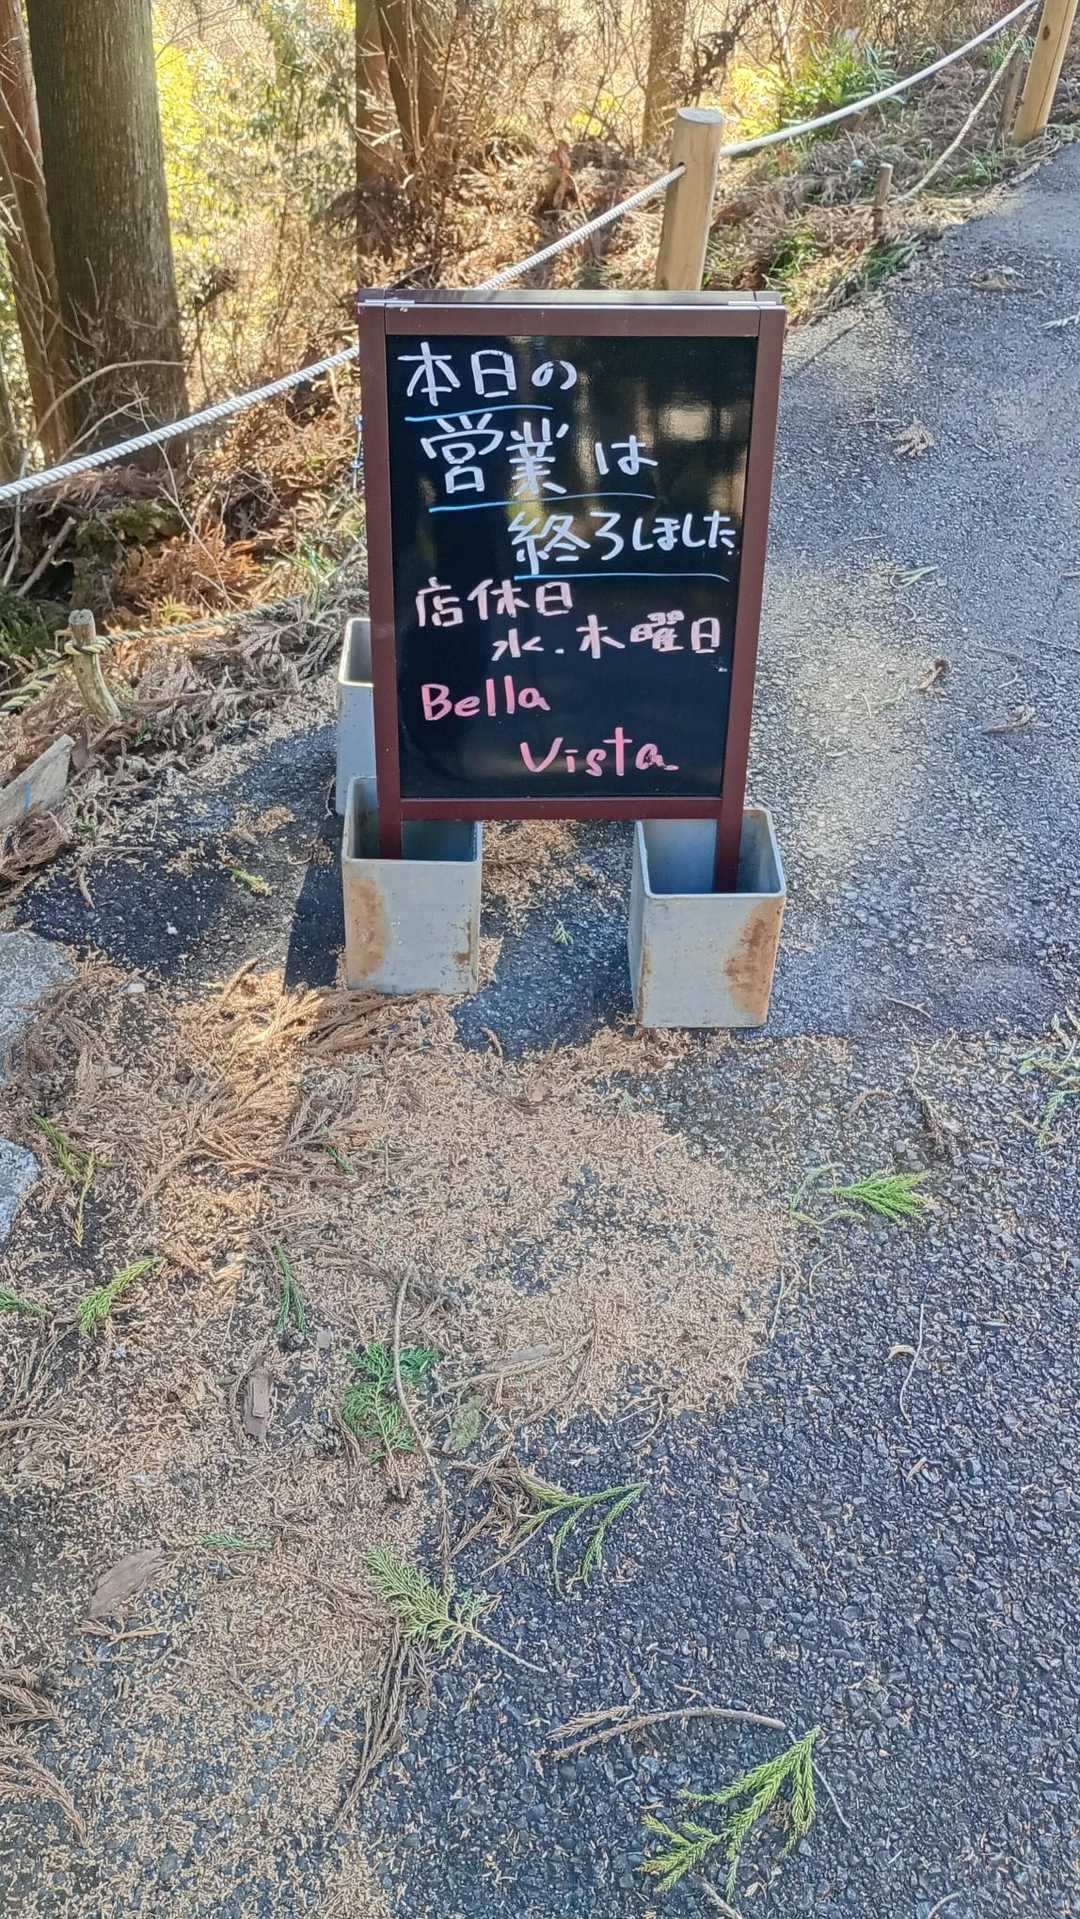 本日の
営業は
終了しました
店休日
水.木曜日
Bella
Vista